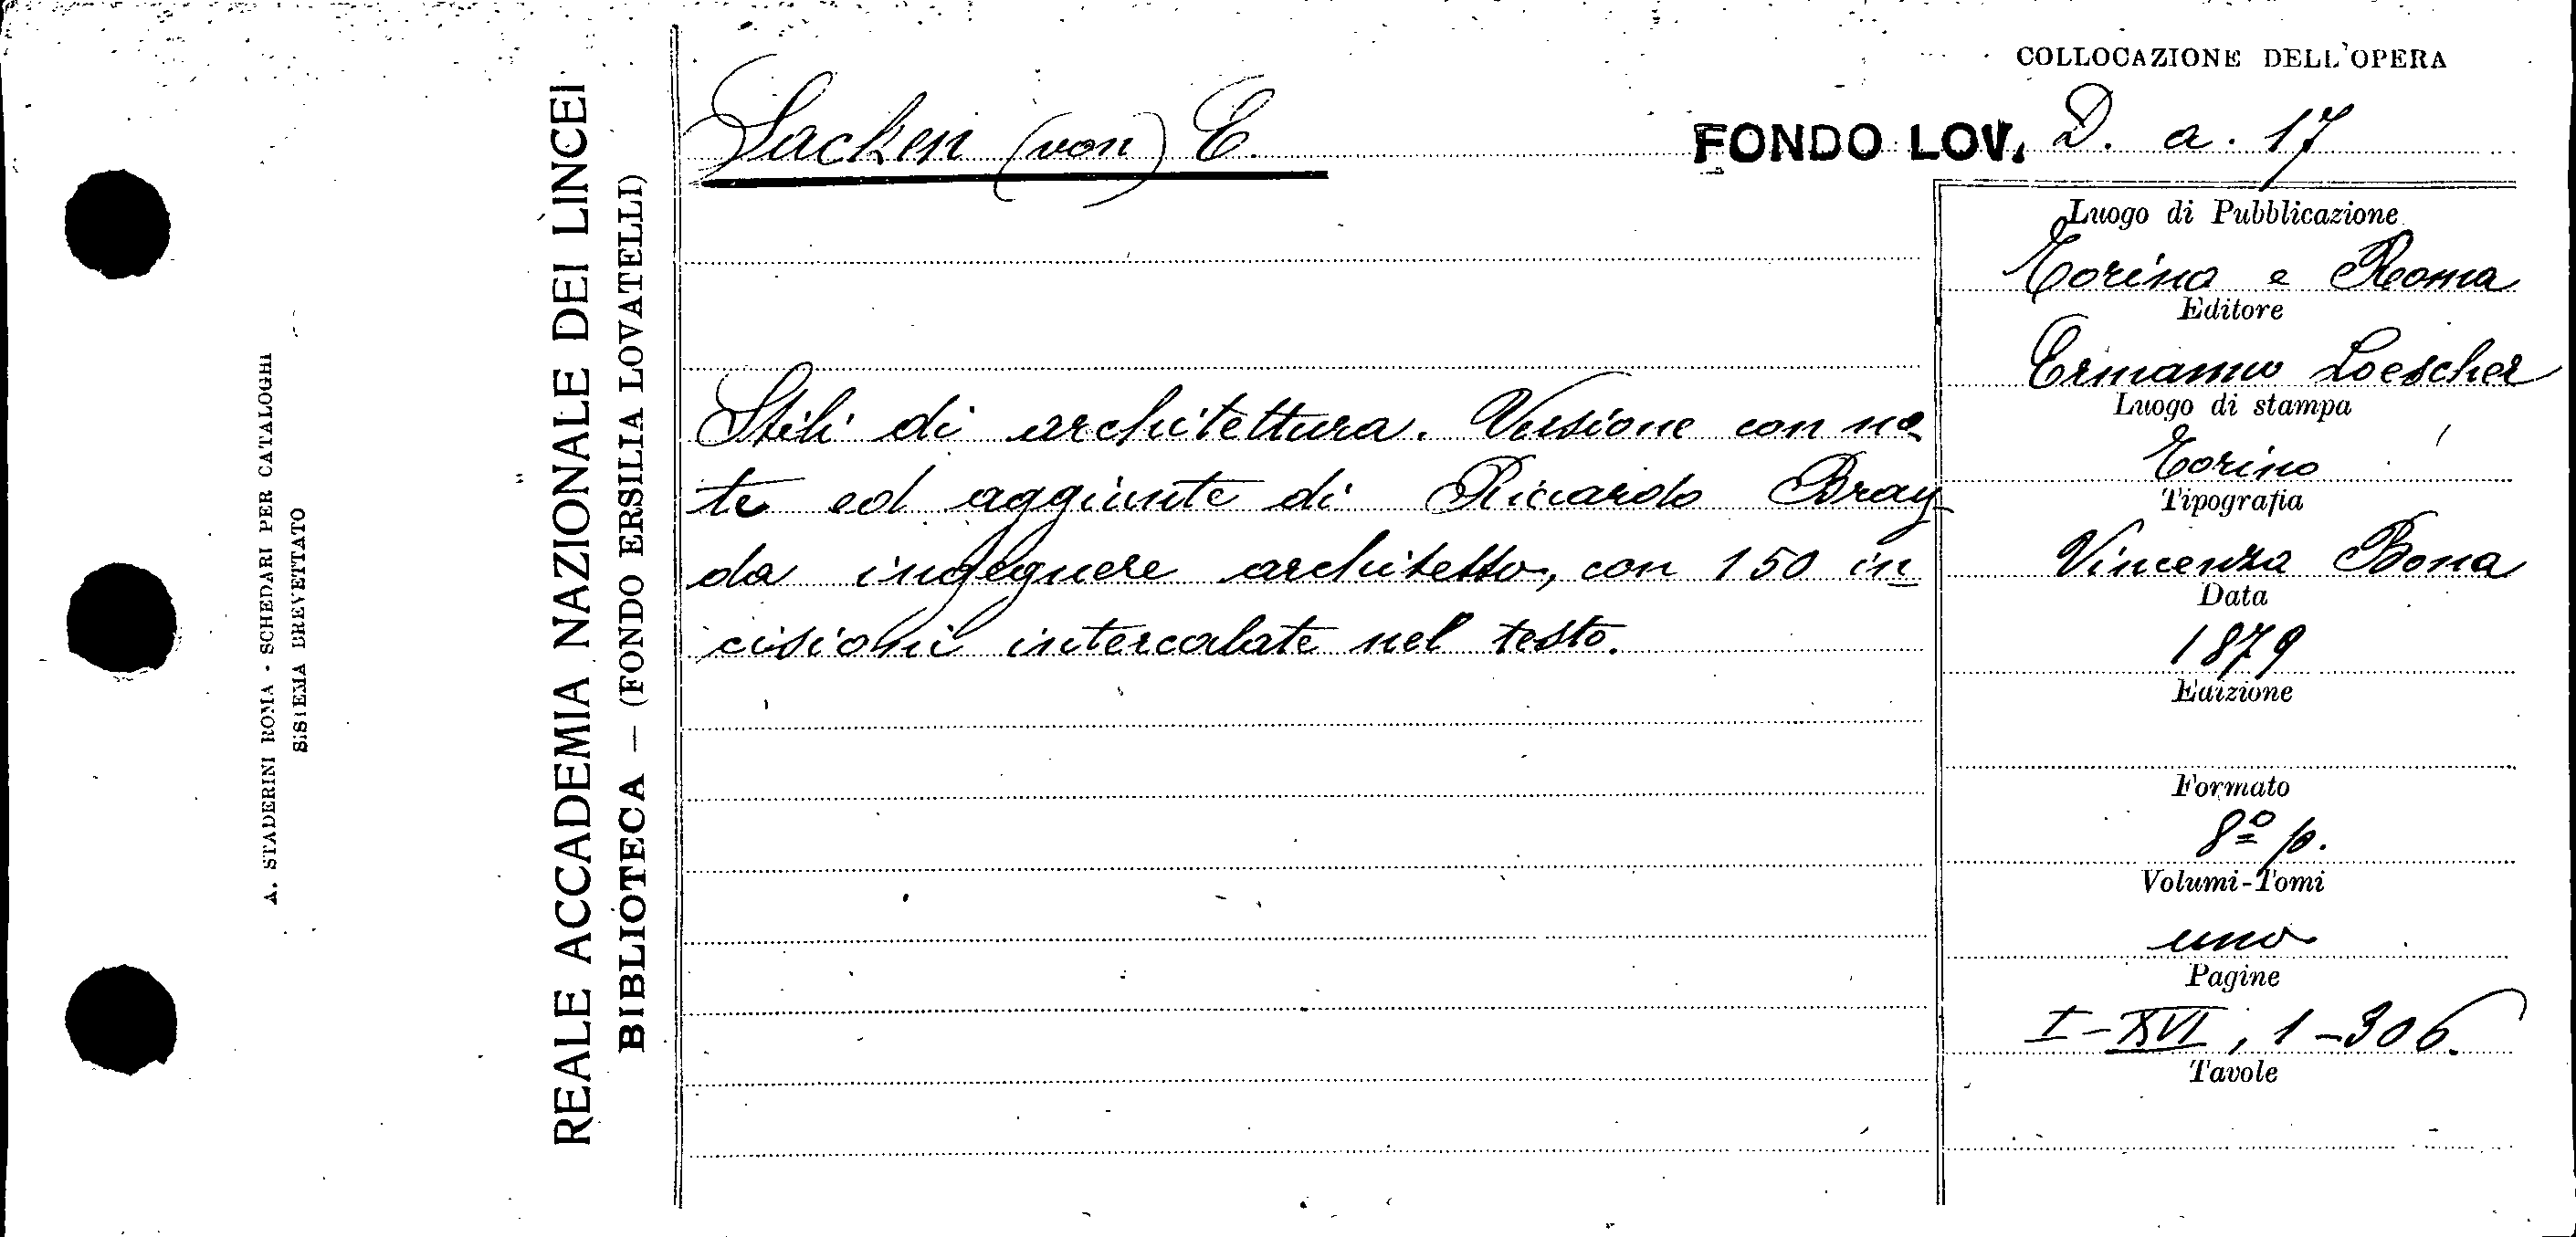 A. STADERINI ROMA - SCHEDARI PER CATALOGHI
SISTEMA BREVETTATO
REALE ACCADEMIA NAZIONALE DEI LINCEI
BIBLIOTECA — (FONDO ERSILIA LOVATELLI)
Sacken (von) E.
COLLOCAZIONE DELL'OPERA
FONDO LOV. D. a. 17
Stili di architettura. Versione con no
te ed aggiunte di Riccardo Bray-
da ingegnere architetto, con 150 in
cisioni intercalate nel testo.
Luogo di Pubblicazione
Torino e Roma
Editore
Ermanno Loescher
Luogo di stampa
Torino
Tipografia
Vincenzo Bona
Data
1879
Edizione
Formato
8º p.
Volumi-Tomi
uno
Pagine
I-XVI, 1-306.
Tavole